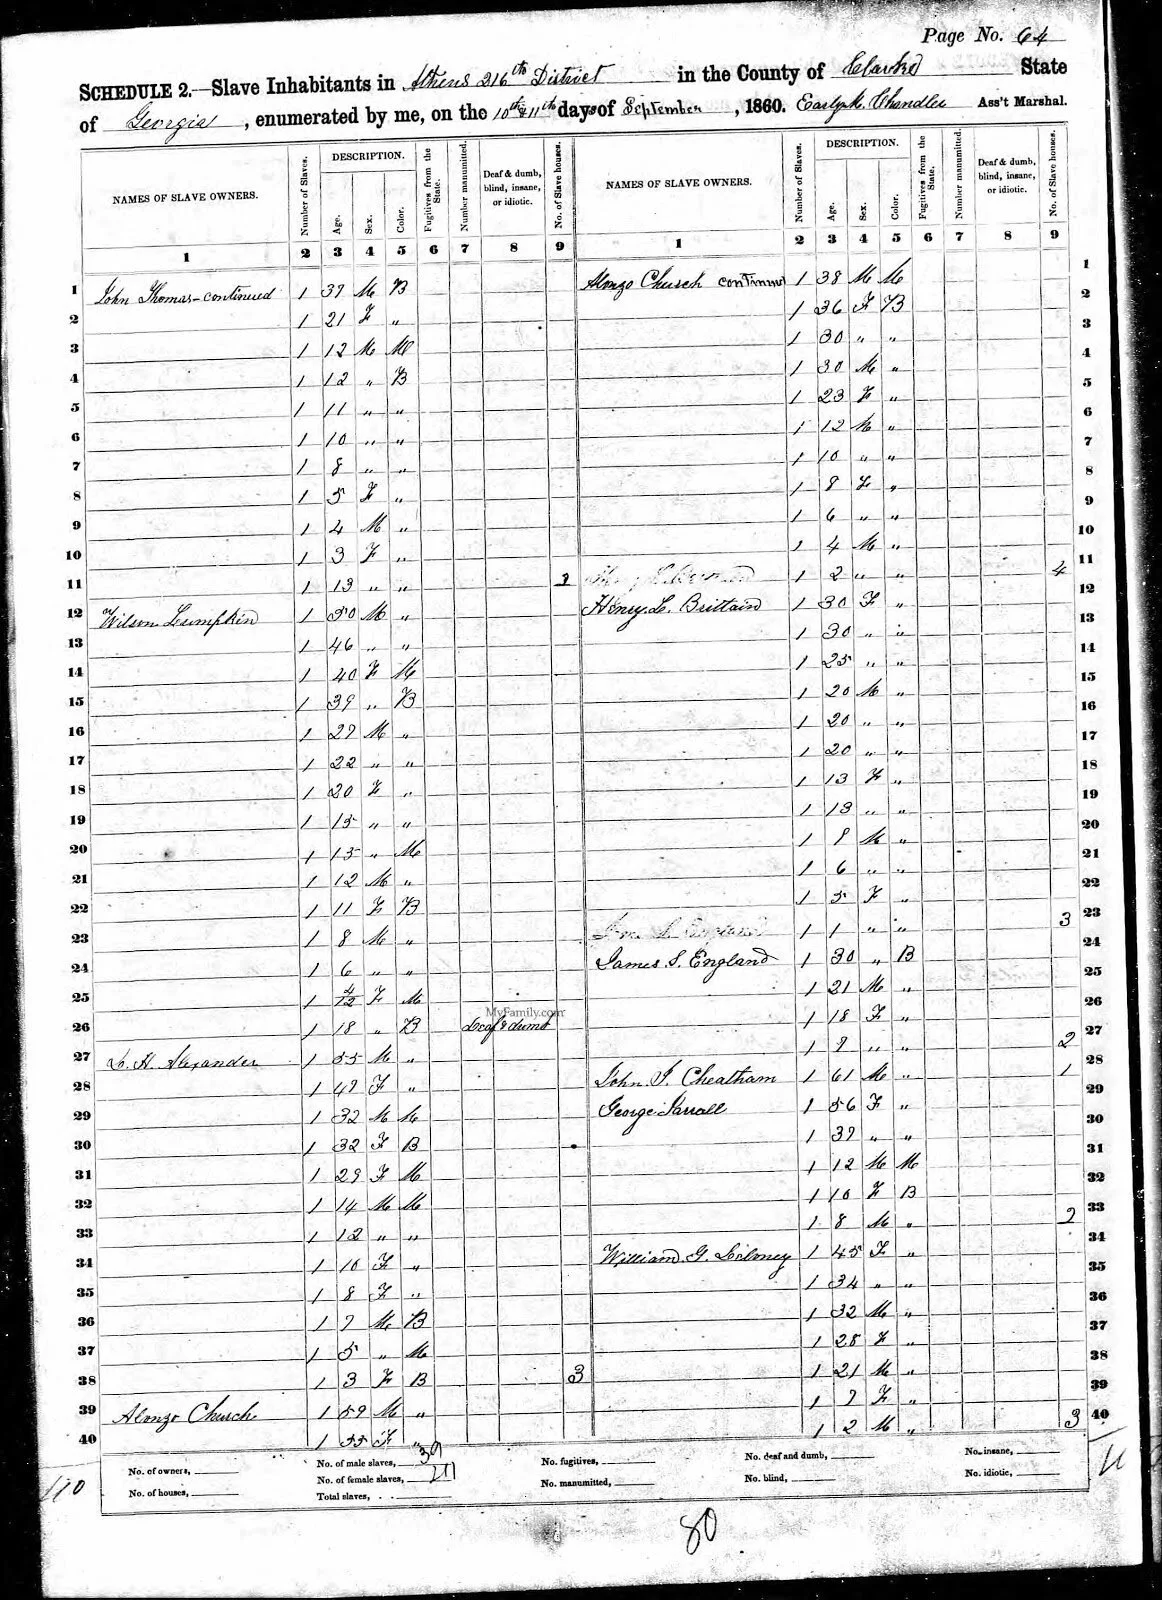 Page No. 64
SCHEDULE 2.—Slave Inhabitants in Athens 216th District in the County of Clarke State
of Georgia, enumerated by me, on the 10th & 11th days of September, 1860. Early M. Chandler Ass't Marshal.
NAMES OF SLAVE OWNERS. Number of Slaves. DESCRIPTION. Age. Sex. Color. Fugitives from the State. Number manumitted. Deaf & dumb, blind, insane, or idiotic. No. of Slave houses.
NAMES OF SLAVE OWNERS. Number of Slaves. DESCRIPTION. Age. Sex. Color. Fugitives from the State. Number manumitted. Deaf & dumb, blind, insane, or idiotic. No. of Slave houses.
1 2 3 4 5 6 7 8 9 1 2 3 4 5 6 7 8 9
1 John Thomas-continued 1 37 M B
2 1 21 F "
3 1 12 M M
4 1 12 " B
5 1 11 " "
6 1 10 " "
7 1 8 " "
8 1 5 F "
9 1 4 M "
10 1 3 F "
11 1 13 " "
12 Wilson Lumpkin 1 50 M "
13 1 46 " "
14 1 40 F M
15 1 39 " B
16 1 27 M "
17 1 22 " "
18 1 20 F "
19 1 15 " "
20 1 15 " M
21 1 12 M "
22 1 11 F B
23 1 8 M "
24 1 6 " "
25 1 4/12 F M
26 1 18 " B Deaf & dumb
MyFamily.com
27 H. Alexander 1 55 M "
28 1 47 F "
29 1 32 M M
30 1 32 F B
31 1 29 F M
32 1 14 M M
33 1 12 " "
34 1 10 F "
35 1 8 F "
36 1 7 M B
37 1 5 " M
38 1 3 F B 3
39 Alonzo Church 1 59 M "
40 1 55 F "
Alonzo Church continued 1 38 M M 1
1 36 F B 2
1 30 " " 3
1 30 M " 4
1 23 F " 5
1 12 M " 6
1 10 " " 7
1 8 F " 8
1 6 " " 9
1 4 M " 10
1 2 " " 4 11
Henry L. Brittain 1 30 F " 12
1 30 " " 13
1 25 " " 14
1 20 M " 15
1 20 " " 16
1 20 " " 17
1 13 F " 18
1 13 " " 19
1 9 M " 20
1 6 " " 21
1 5 F " 22
1 1 " " 3 23
James S. England 1 30 " B 24
1 21 M " 25
1 18 F " 26
1 9 " " 2 27
John J. Cheatham 1 61 M " 1 28
George Jarrall 1 56 F " 29
1 37 " " 30
1 12 M M 31
1 10 F B 32
1 8 M " 2 33
William G. Deloney 1 45 F " 34
1 34 " " 35
1 32 M " 36
1 28 F " 37
1 21 M " 38
1 7 F " 39
1 2 M " 3 40
No. of owners, No. of male slaves, 39 No. fugitives, No. deaf and dumb, No. insane,
No. of houses, No. of female slaves, 41 No. manumitted, No. blind, No. idiotic,
Total slaves,
80